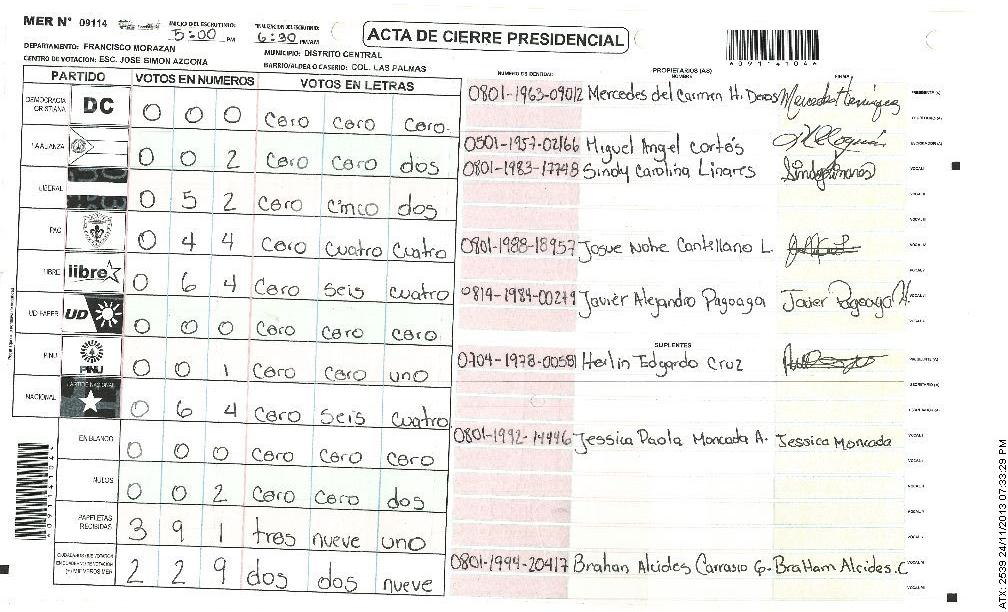 MER N° 09114
INICIO DEL ESCRUTINIO:
5:00 PM
FINALIZACION DEL ESCRUTINIO:
6:30 PM/AM
ACTA DE CIERRE PRESIDENCIAL
6091141044
DEPARTAMENTO: FRANCISCO MORAZAN
MUNICIPIO: DISTRITO CENTRAL
CENTRO DE VOTACION: ESC. JOSE SIMON AZCONA
BARRIO/ALDEA O CASERIO: COL. LAS PALMAS
PARTIDO VOTOS EN NUMEROS VOTOS EN LETRAS
NUMERO DE IDENTIDAD PROPIETARIOS (AS) NOMBRE FIRMA
DEMOCRACIA CRISTIANA DC 0 0 0 cero cero cero
0801-1963-09012 Mercedes del Carmen H. PRESIDENTE (A)
LA ALIANZA 0 0 2 cero cero dos
0501-1957-02166 Miguel Angel Cortés
0801-1983-17748 Sindy Carolina Linares Sindy Linares
LIBERAL 0 5 2 cero cinco dos
PAC 0 4 4 cero cuatro cuatro
0801-1988-18957 Josue Nohe Cantellano L.
LIBRE libre 0 6 4 cero seis cuatro
0814-1984-00249 Javier Alejandro Pagoaga Javier Pagoaga
UD FAPER UD 0 0 0 cero cero cero
SUPLENTES
PINU PINU 0 0 1 cero cero uno
0704-1978-00581 Herlin Edgardo Cruz PRESIDENTE (A)
NACIONAL PARTIDO NACIONAL 0 6 4 cero seis cuatro
EN BLANCO 0 0 0 cero cero cero
0801-1992-14446 Jessica Paola Moncada A. Jessica Moncada
NULOS 0 0 2 cero cero dos
PAPELETAS RECIBIDAS 3 9 1 tres nueve uno
2 2 9 dos dos nueve
0801-1994-20417 Brahan Alcides Carrasco G. Braham Alcides.C
ATX: 2539 24/11/2013 07:33:29 PM